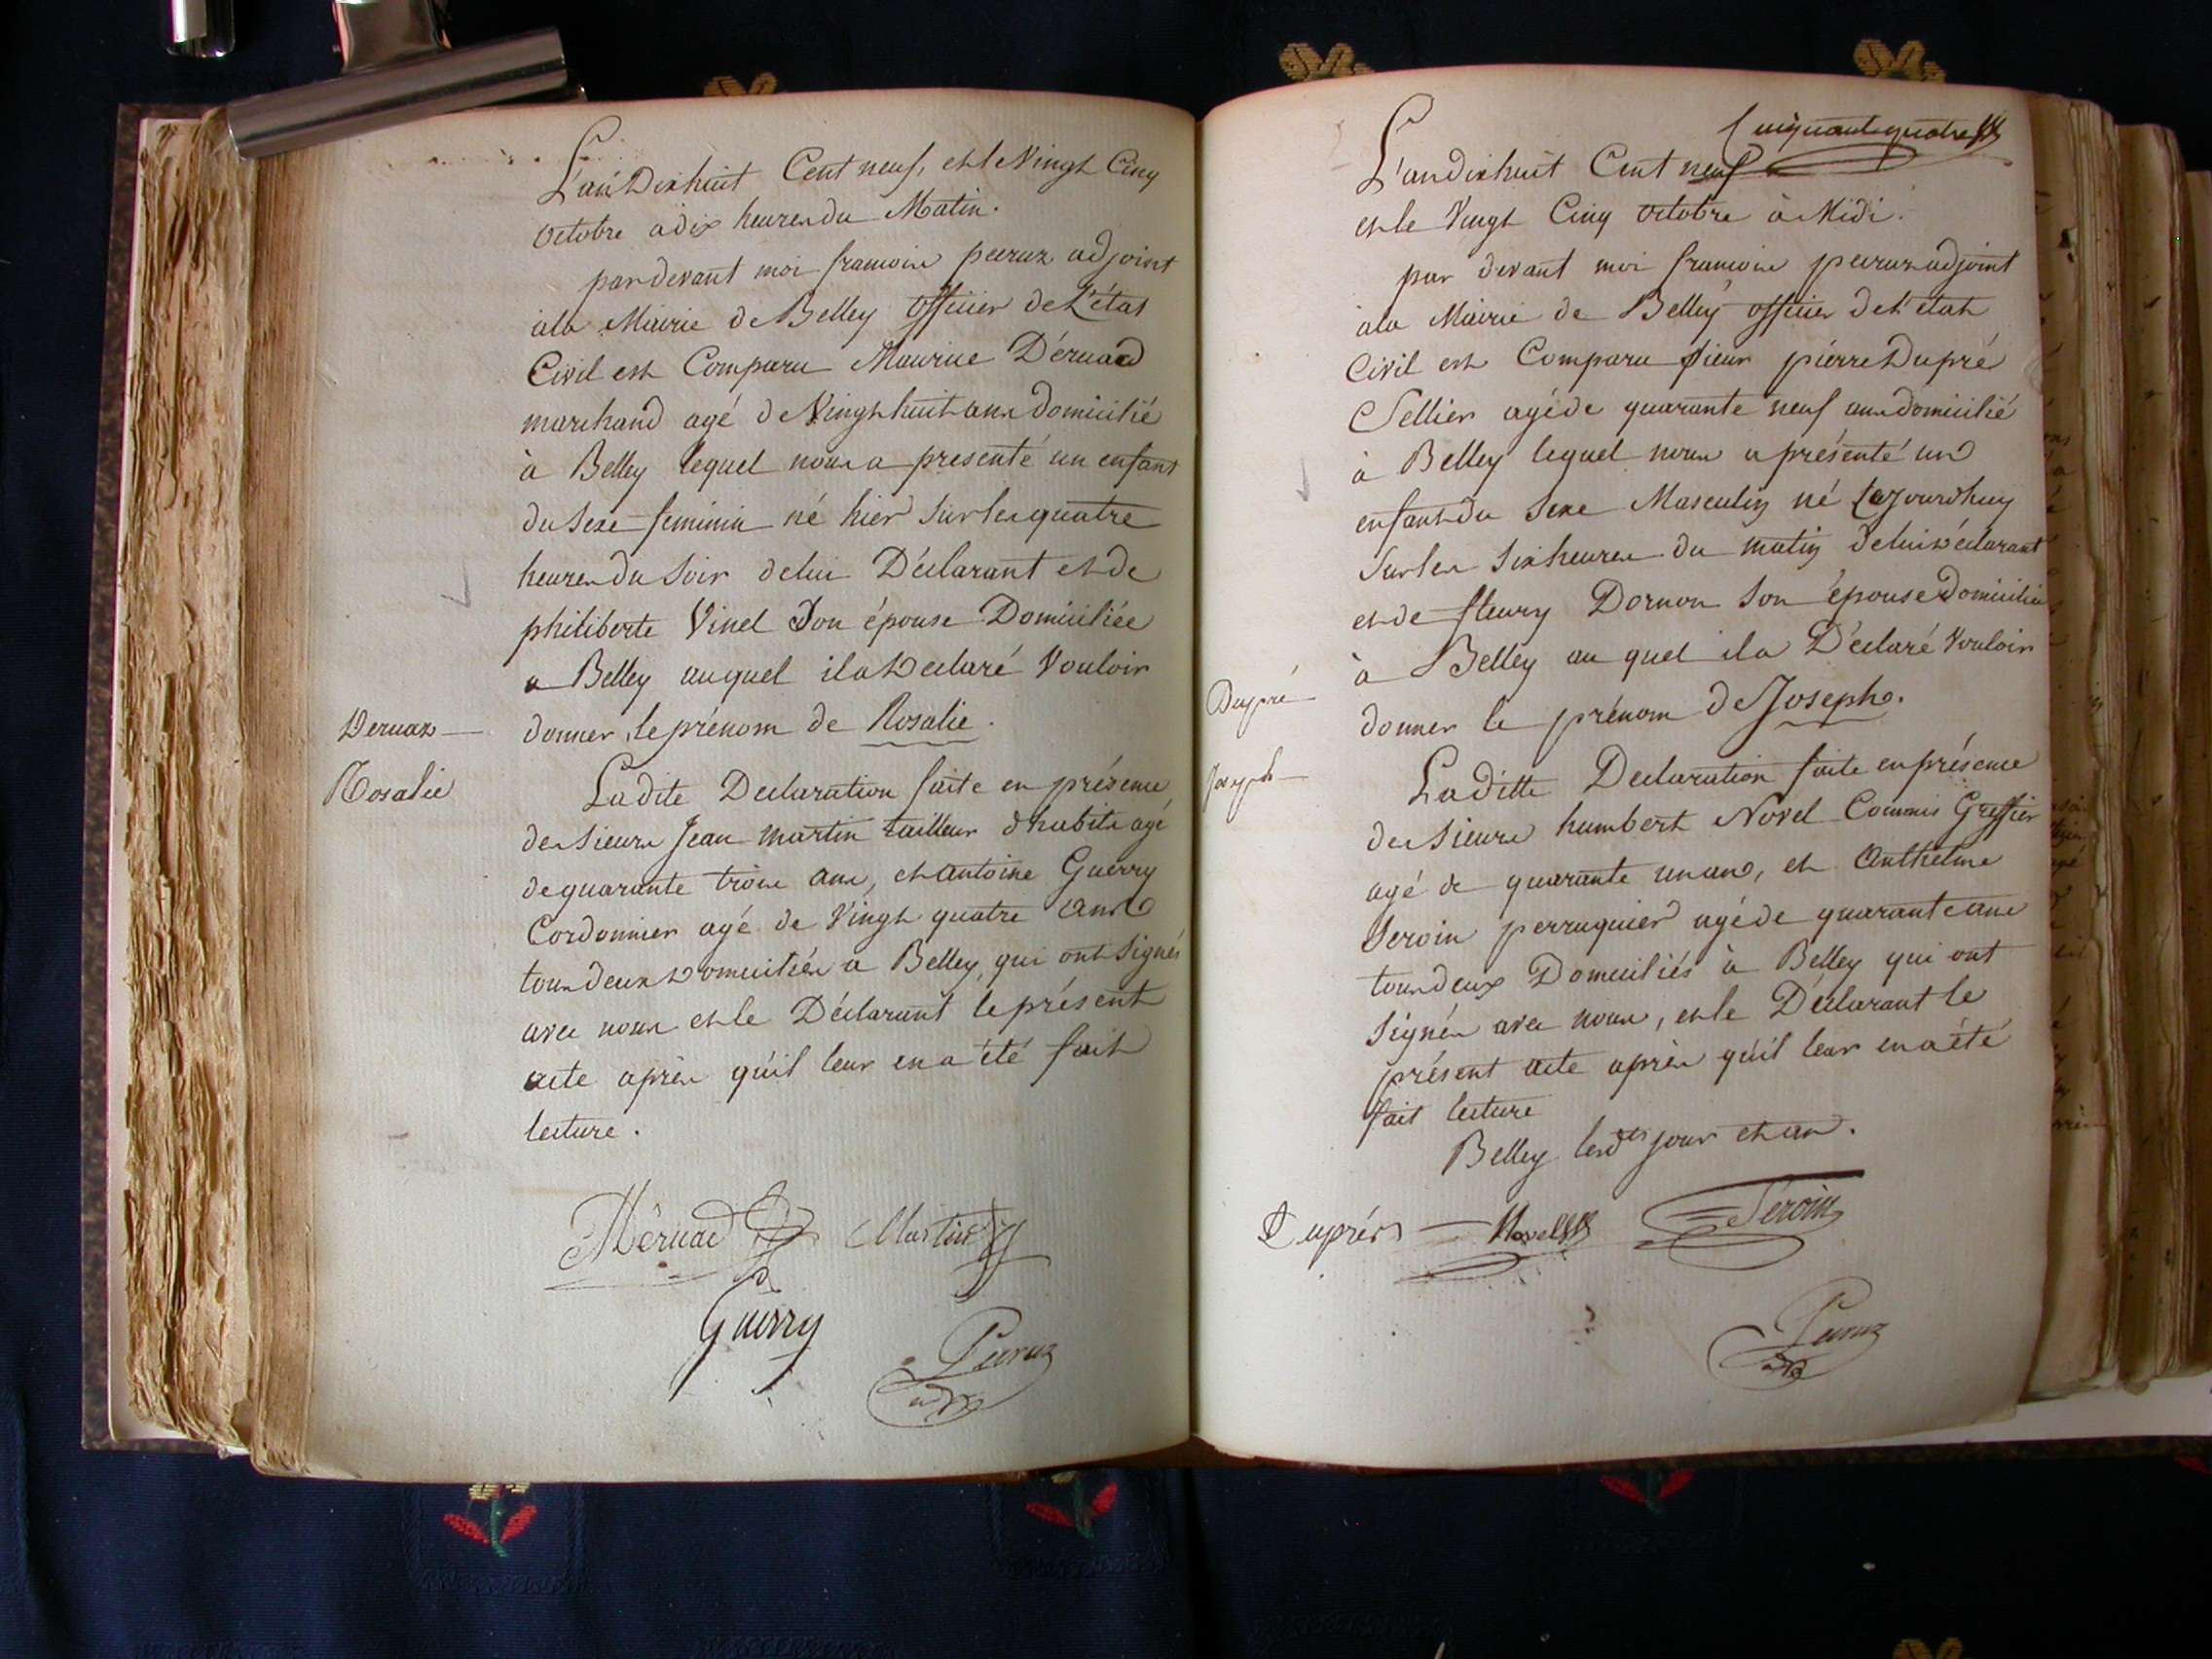 L'an Dix huit Cent neuf, et le Vingt Cinq
octobre à dix heures du Matin.
par devant moi francois peeruz adjoint
à la Mairie de Belley officier de L'état
Civil est Comparu Maurice Déruad
marchand agé de Vingt huit ans domicilié
à Belley lequel nous a presenté un enfant
du sexe feminin né hier sur les quatre
heures du soir de lui Déclarant et de
philiberte Vinel son épouse Domiciliée
a Belley auquel il a Declaré Vouloir
donner le prénom de Rosalie.
Deruaz
Rosalie
La dite Declaration faite en présence
des sieurs Jean martin tailleur d'habits agé
de quarante trois ans, et antoine Guerry
Cordonnier agé de Vingt quatre ans
tous deux Domiciliés a Belley, qui ont signés
avec nous et le Déclarant le présent
acte après qu'il leur en a été fait
lecture.
Déruad Martin
Guerry
Peeruz
Cinquante quatre
L'an dix huit Cent neuf
et le Vingt Cinq octobre à Midi.
par devant moi francois peeruz adjoint
à la Mairie de Belley officier de L'état
Civil est Comparu sieur pierre Dupré
Sellier agé de quarante neuf ans domicilié
à Belley lequel nous a présenté un
enfant du sexe Masculin né cejourdhuy
sur les six heures du matin de lui déclarant
et de fleury Dornon son épouse Domiciliée
à Belley au quel il a Déclaré Vouloir
donner le prénom de Joseph.
Dupré
Joseph
La ditte Declaration faite en présence
des sieurs humbert Novel Commis Greffier
agé de quarante un ans, et Anthelme
Seroin perruquier agé de quarante ans
tous deux Domiciliés à Belley qui ont
signés avec nous, et le Déclarant le
présent acte après qu'il leur en a été
fait lecture
Belley lesdts jour et an.
Duprés Novel Séroin
Peeruz